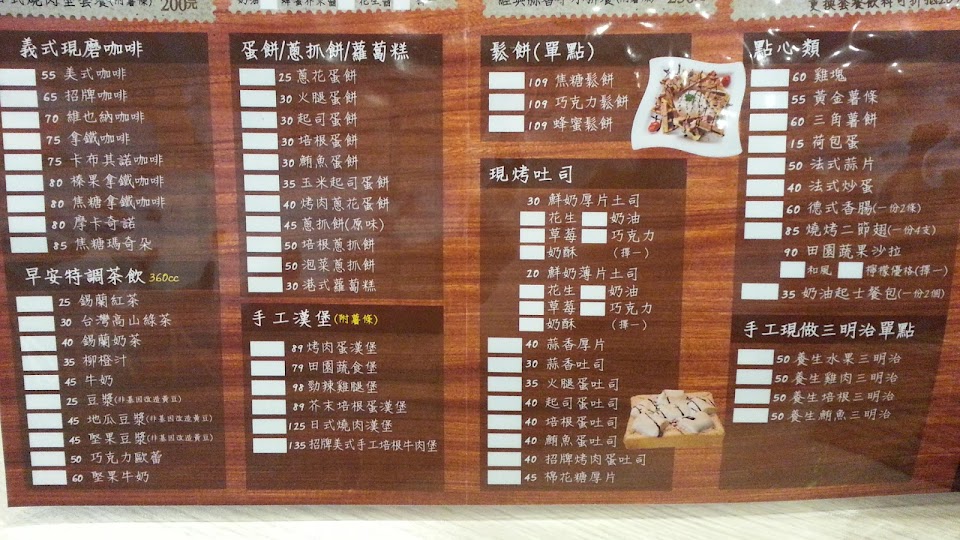 200元
義式現磨咖啡
55 美式咖啡
65 招牌咖啡
70 維也納咖啡
75 拿鐵咖啡
75 卡布其諾咖啡
80 榛果拿鐵咖啡
80 焦糖拿鐵咖啡
80 摩卡奇諾
85 焦糖瑪奇朵
早安特調茶飲 360cc
25 錫蘭紅茶
30 台灣高山綠茶
40 錫蘭奶茶
35 柳橙汁
45 牛奶
25 豆漿(非基因改造黃豆)
45 地瓜豆漿(非基因改造黃豆)
45 堅果豆漿(非基因改造黃豆)
50 巧克力歐蕾
60 堅果牛奶
蛋餅/蔥抓餅/蘿蔔糕
25 蔥花蛋餅
30 火腿蛋餅
30 起司蛋餅
30 培根蛋餅
30 鮪魚蛋餅
35 玉米起司蛋餅
40 烤肉蔥花蛋餅
45 蔥抓餅(原味)
50 培根蔥抓餅
50 泡菜蔥抓餅
30 港式蘿蔔糕
手工漢堡(附薯條)
89 烤肉蛋漢堡
79 田園蔬食堡
98 勁辣雞腿堡
89 芥末培根蛋漢堡
125 日式燒肉漢堡
135 招牌美式手工培根牛肉堡
鬆餅(單點)
109 焦糖鬆餅
109 巧克力鬆餅
109 蜂蜜鬆餅
現烤吐司
30 鮮奶厚片土司
花生 奶油
草莓 巧克力
奶酥 (擇一)
20 鮮奶薄片土司
花生 奶油
草莓 巧克力
奶酥 (擇一)
40 蒜香厚片
30 蒜香吐司
35 火腿蛋吐司
40 起司蛋吐司
40 培根蛋吐司
40 鮪魚蛋吐司
40 招牌烤肉蛋吐司
45 棉花糖厚片
點心類
60 雞塊
55 黃金薯條
60 三角薯餅
15 荷包蛋
50 法式蒜片
40 法式炒蛋
60 德式香腸(一份2條)
85 燒烤二節翅(一份4支)
90 田園蔬果沙拉
和風 檸檬優格(擇一)
35 奶油起士餐包(一份2個)
手工現做三明治單點
50 養生水果三明治
50 養生雞肉三明治
50 養生培根三明治
50 養生鮪魚三明治